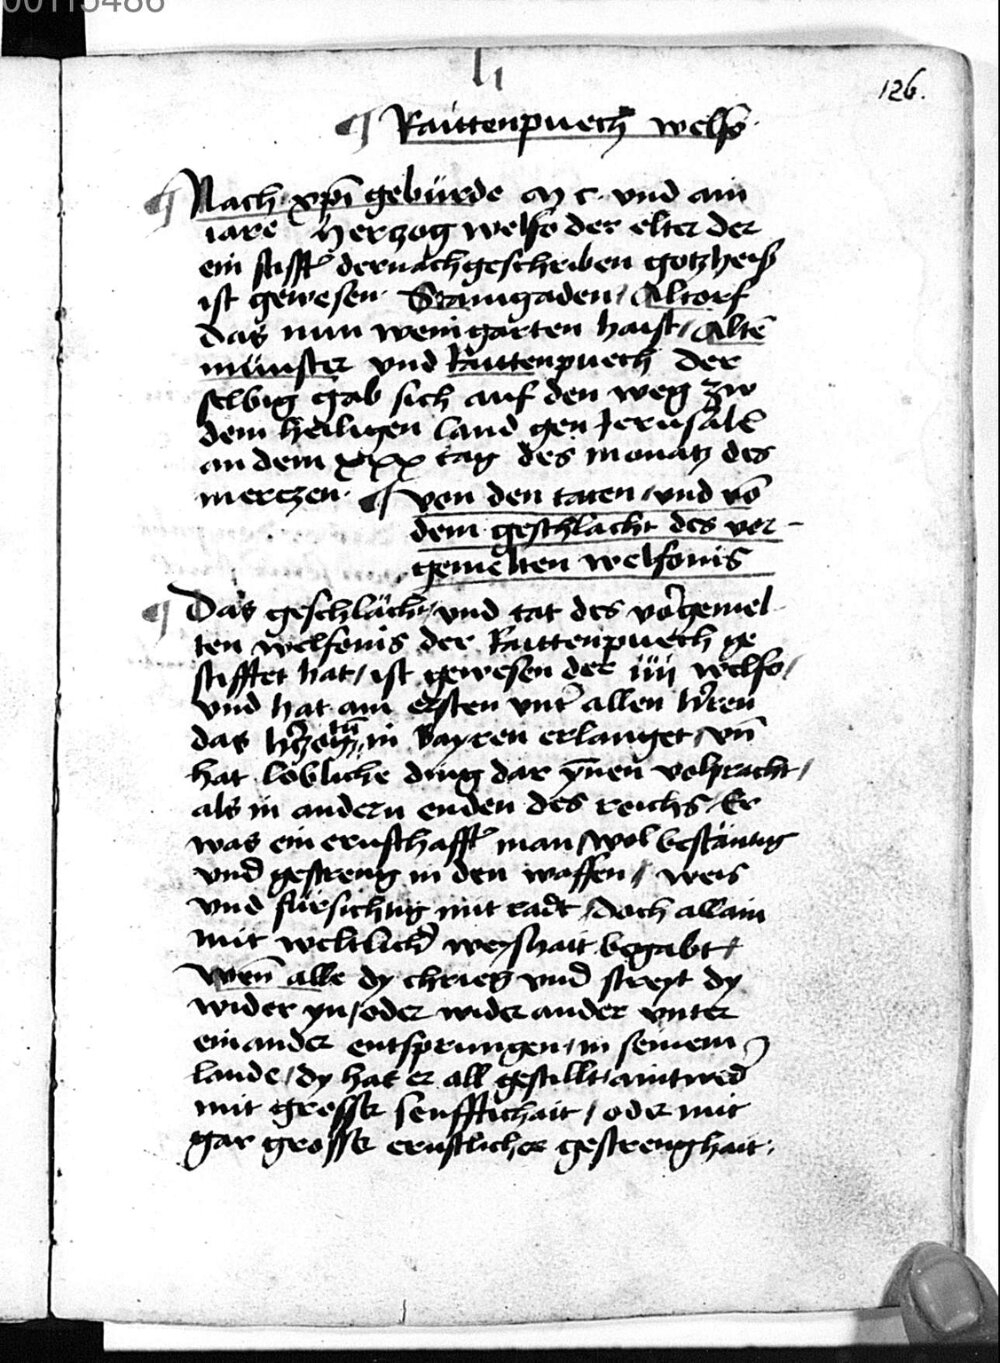 00115486
126.
¶ Raittenpuech welfo
¶ Nach xpi gebürde M c. vnd ain
iare Herczog welfo der elter der
ein stiffter dernachgeschriben gotzheuser
ist gewesen. Staingaden / Altorf
das nun weingarten haist / Alten
münster vnd Raittenpuech der
selbig gab sich auf den weg zw
dem heiligen land gen Jerusalem
an dem xxx tag des monatz des
merczen. ¶ von den taten vnd vō
dem geschlächt des vor-
gemelten welfonis
¶ Das geschlächt / vnd tat des vorgemel
ten welfonis der Raittenpuech ge
stifftet hat / ist gewesen der iiii welfo /
vnd hat am ersten vnter allen herren
das in Bayren erlanget / vn̄
hat lobliche ding dar ynnen volpracht /
als in andern enden des reichs / Er
was ein ernsthafft man / wol bestäntig
vnd gestreng in den waffen / weis
vnd fürsichtig mit radt / doch allain
mit weltlicher weyshait begabt /
Wen̄ alle dy chrieg vnd streyt dy
wider yn / oder wider ander vnter
einander entsprungen / in seinem
lande / dy hat er all gestillt aintweder
mit grosser senfftichait / oder mit
gar grosser ernstlicher gestrenghait.